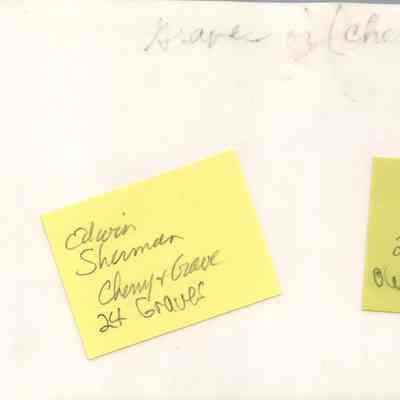 Graves of (Che
Edwin
Sherman
Cherry + Grave
24 Graves